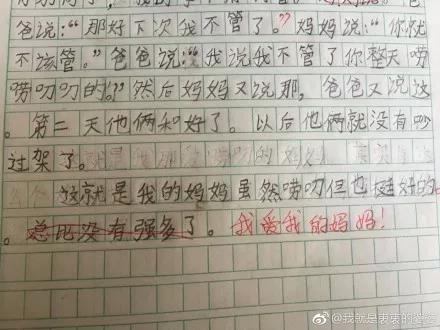 爸说：“那好下次我不管了。”妈妈说：“你就
不该管。”爸爸说：“我说我不管了你整天唠
唠叨叨的。”然后妈妈又说那，爸爸又说这
。第二天他俩和好了。以后他俩就没有吵
过架了。
这就是我的妈妈虽然唠叨但也挺好的
。总比没有强多了。我爱我的妈妈！
@我就是衷衷的婆婆